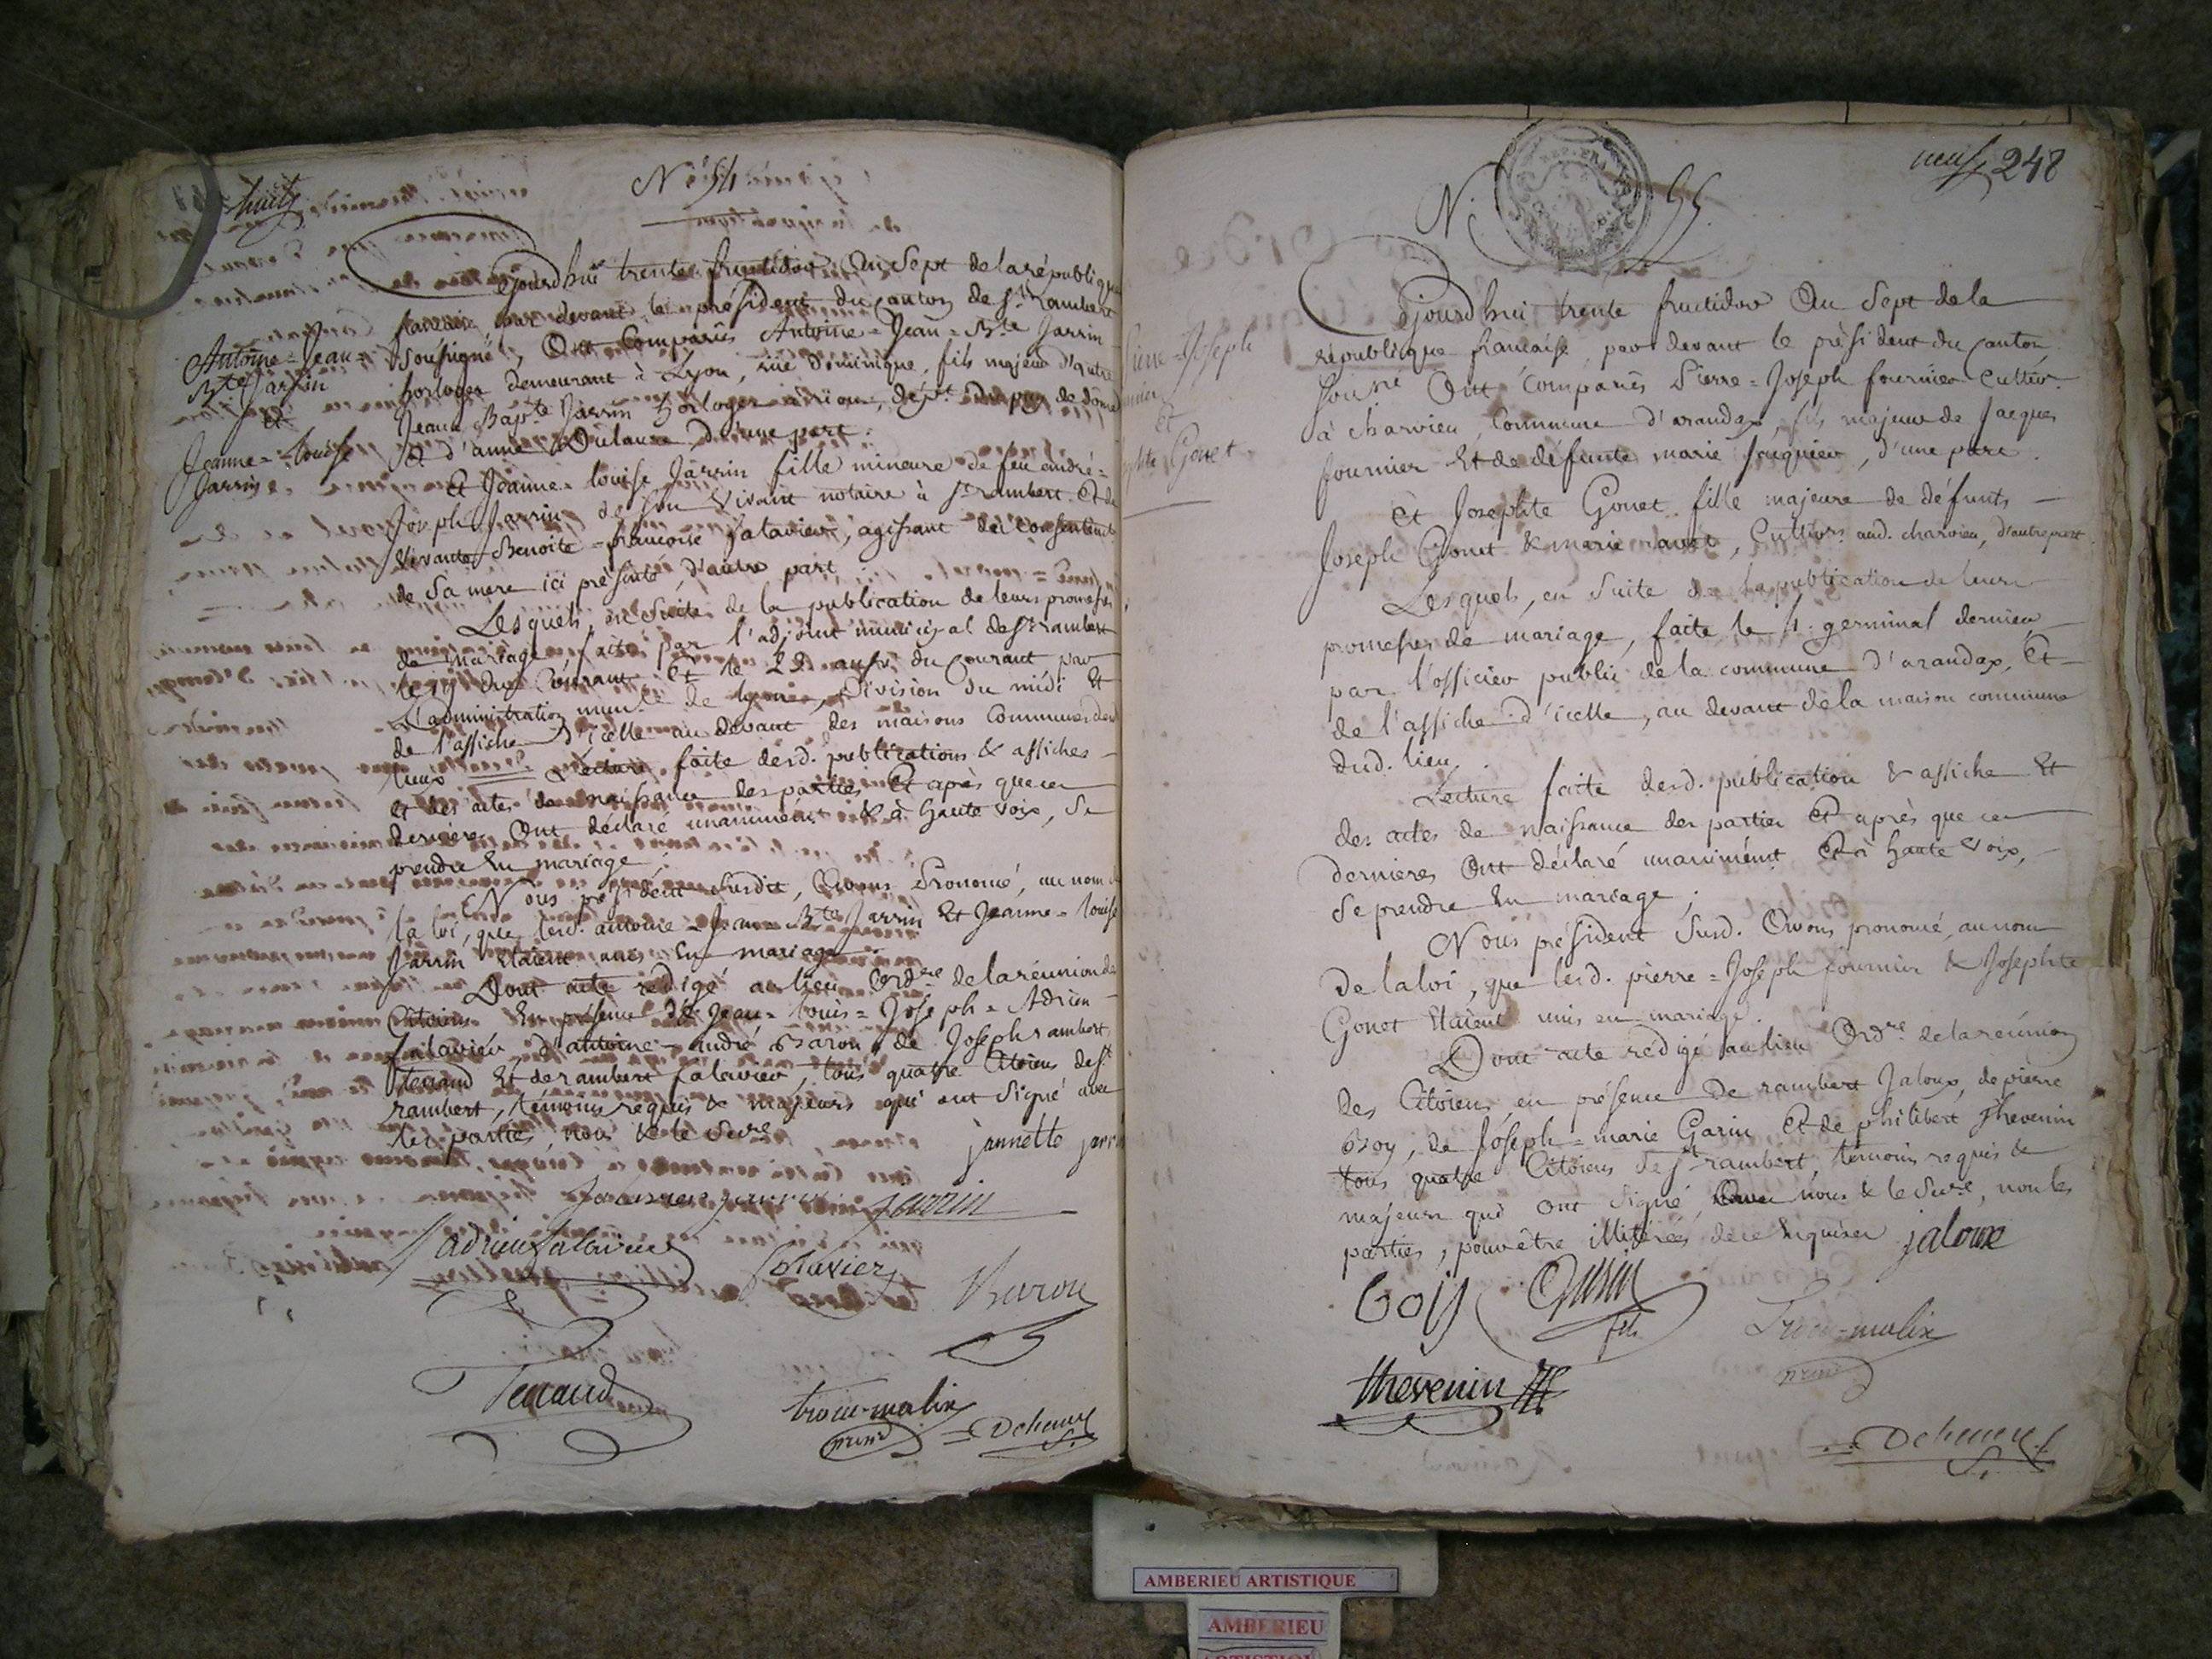 huit
N.° 54
Antoine = Jean =
B.te Jarrin
et
Jeanne = Louise
Jarrin
Ojourdhui trente fructidor An Sept de la république
par devant le président du Canton de S.t rambert
soussigné, Ont Comparus Antoine = Jean = B.te Jarrin
horloger demeurant à Lyon, rüe Dominique, fils majeur d'autre
Jean Bap.te Jarrin horloger à riom, dép.t du puy de dôme
Et d'anne Dulaure, d'une part.
Et Jeanne = louise Jarrin fille mineure de feu andré =
Joseph Jarrin de son vivant notaire à S.t rambert. Et de
vivante Benoite = françoise falavier, agissant du Consentemt
de Sa mere ici présente, d'autre part
Lesquels, en Suite de la publication de leurs promesses
de mariage, faite par l'adjoint municipal de S.t rambert
le 19 du Courant Et le 22 aussi du Courant par
L'administration mun.le de lyon, Division du midi Et
de l'affiche d'icelle au devant des maisons Communes desd.
lieux Lecture faite desd. publications & affiches
et des actes de naissance des parties Et après que ces
derniers Ont déclaré unanimém.t & à haute voix, Se
prendre En mariage ;
Nous président Susdit, Avons Prononcé, au nom de
la loi, que lesd. antoine = Jean = B.te Jarrin Et Jeanne = louise
Jarrin Etaient unis En mariage
Dont acte rédigé au lieu Ord.re de la réunion des
Citoiens En présence de Jean = louis = Joseph = Adrien
falavier d'antoine = andré Baron, de Joseph rambert
Tenand Et de rambert falavier, tous quatre Citoiens de S.t
rambert, témoins requis & majeurs qui ont Signé avec
les parties, nous & le Sec.re
jannette jarrin
jarrin
adrien falavier
falavier
Baron
Tenand
trocu-malix
présid
Dehenne
S.
neuf 248
N. 55.
REP. FRA
Pierre = Joseph
fournier
Et
Josephte Gonet
Ojourdhui trente fructidor An Sept de la
république francaise, par devant le président du Canton
Sousné Ont Comparus Pierre = Joseph fournier Cultivr
à charvieu, Commune d'arandas, fils majeur de Jacques
fournier Et de défunte marie Juquier, d'une part.
Et Josephte Gonet fille majeure de défunts
Joseph Gonet & marie ravet, Cultivrs aud. charvieu, d'autre part.
Lesquels, en Suite de la publication de leurs
promesses de mariage, faite le 1. germinal dernier
par l'officier public de la commune d'arandas, Et
de l'affiche d'icelle, au devant de la maison commune
dud. lieu.
Lecture faite desd. publication & affiche Et
des actes de naissance des parties Et après que ces
dernieres Ont déclaré unanimém.t Et à haute voix,
Se prendre En mariage ;
Nous président Susd. Avons prononcé, au nom
De la loi, que lesd. pierre = Joseph fournier & Josephte
Gonet Etaient unis en mariage.
Dont acte rédigé au lieu Ord.re de la réunion
des Citoiens, en présence De rambert Jaloux, de pierre
Boy, de Joseph = marie Garin Et de philibert thevenin
tous quatre Citoiens de S.t rambert, témoins requis &
majeurs qui ont Signé, Avec nous & le Sec.re, non les
parties, pour être illitérées de ce Enquises jaloux
boy
Garin
fils
trocu-malix
présid
thevenin
Dehenne
S.
AMBERIEU ARTISTIQUE
AMBERIEU
ARTISTIQUE